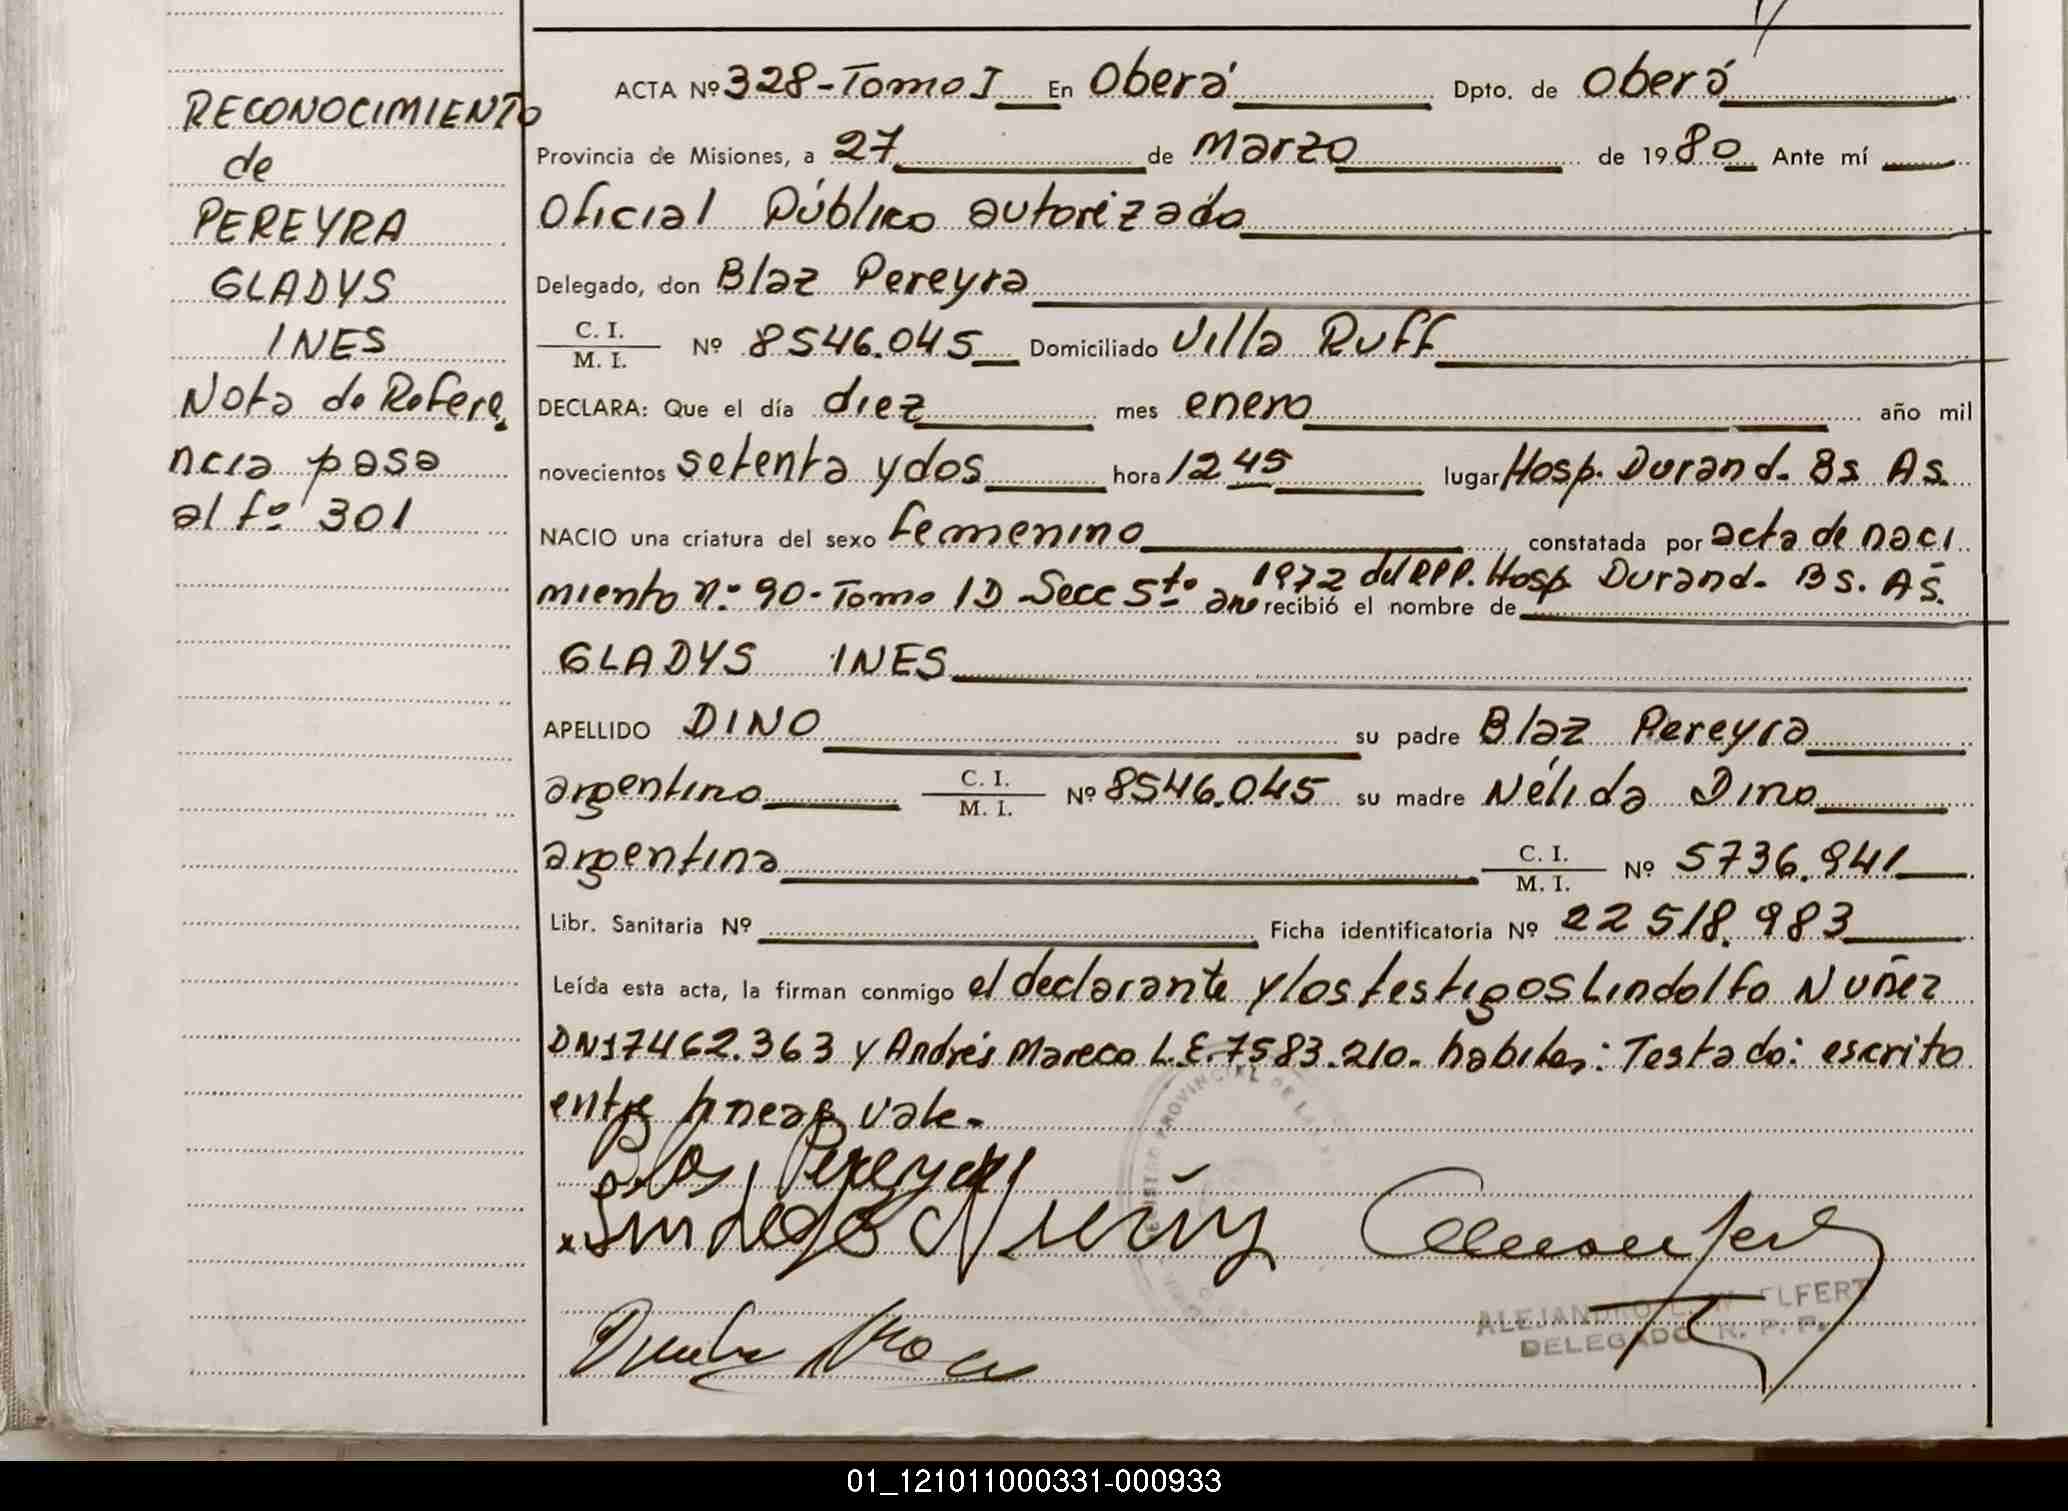 RECONOCIMIENTO
de
PEREYRA
GLADYS
INES
Nota de Refere
ncia pasa
al fº 301
ACTA Nº 328-Tomo I En Oberá Dpto. de Oberá
Provincia de Misiones, a 27 de Marzo de 1980 Ante mí
Oficial Público autorizado
Delegado, don Blaz Pereyra
C. I.
M. I. Nº 8546.045 Domiciliado Villa Ruff
DECLARA: Que el día diez mes enero año mil
novecientos setenta y dos hora 12 45 lugar Hosp. Durand. Bs As.
NACIO una criatura del sexo femenino constatada por acta de naci
1972 del RPP. Hosp Durand. Bs. As.
miento n.º 90-Tomo 1D-Secc 5tº año recibió el nombre de
GLADYS INES
APELLIDO DINO su padre Blaz Pereyra
argentino C. I.
M. I. Nº 8546.045 su madre Nélida Dino
argentina C. I.
M. I. Nº 5736.941
Libr. Sanitaria Nº Ficha identificatoria Nº 22518.983
Leída esta acta, la firman conmigo el declarante y los testigos Lindolfo Nuñez
DNI 7462.363 y Andrés Mareco L.E. 7583.210. habiles: Testado: escrito
entre lineas vale.
Blas Pereyra
Lindolfo Nuñez
ALEJANDRO ELFERT
DELEGADO R. P. P.
REGISTRO PROVINCIAL DE LAS
01_121011000331-000933